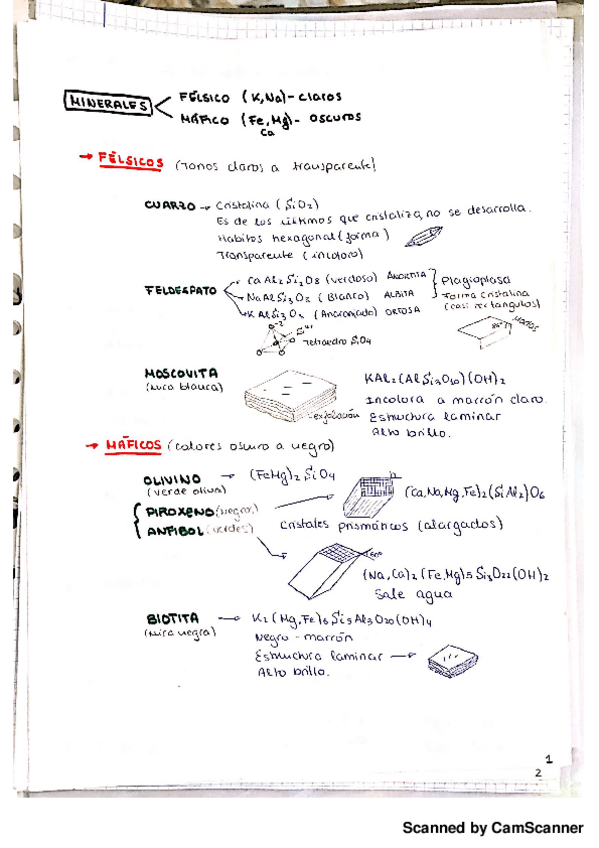 MINERALES
FÉLSICO (K,Na)- claros
MÁFICO (Fe,Mg)- oscuros
Ca
→ FÉLSICOS (Tonos claros a transparente)
CUARZO → Cristalina (SiO2)
Es de los últimos que cristaliza, no se desarrolla.
Habitos hexagonal (forma)
Transparente (incoloro)
FELDESPATO
CaAl2Si2O8 (verdoso) ANORTITA
NaAlSi3O8 (Blanco) ALBITA
KAlSi3O8 (Anaranjado) ORTOSA
Plagioplasa
Forma cristalina
(casi rectangulos)
Tetraedro SiO4
MOSCOVITA
(mica blanca)
exfoliación
KAl2(AlSi3O10)(OH)2
Incolora a marrón claro.
Estructura laminar
Alto brillo.
→ MÁFICOS (colores oscuro a negro)
OLIVINO → (FeMg)2 SiO4
(verde oliva)
PIROXENO (negro)
ANFIBOL (verdes)
(Ca,Na,Mg,Fe)2(SiAl2)O6
Cristales prismáticos (alargados)
(Na,Ca)2(Fe,Mg)5 Si3O22(OH)2
Sale agua
BIOTITA → K2(Mg,Fe)6Si5Al3O20(OH)4
(mica negra)
Negro - marrón
Estructura laminar →
Alto brillo.
1
2
Scanned by CamScanner